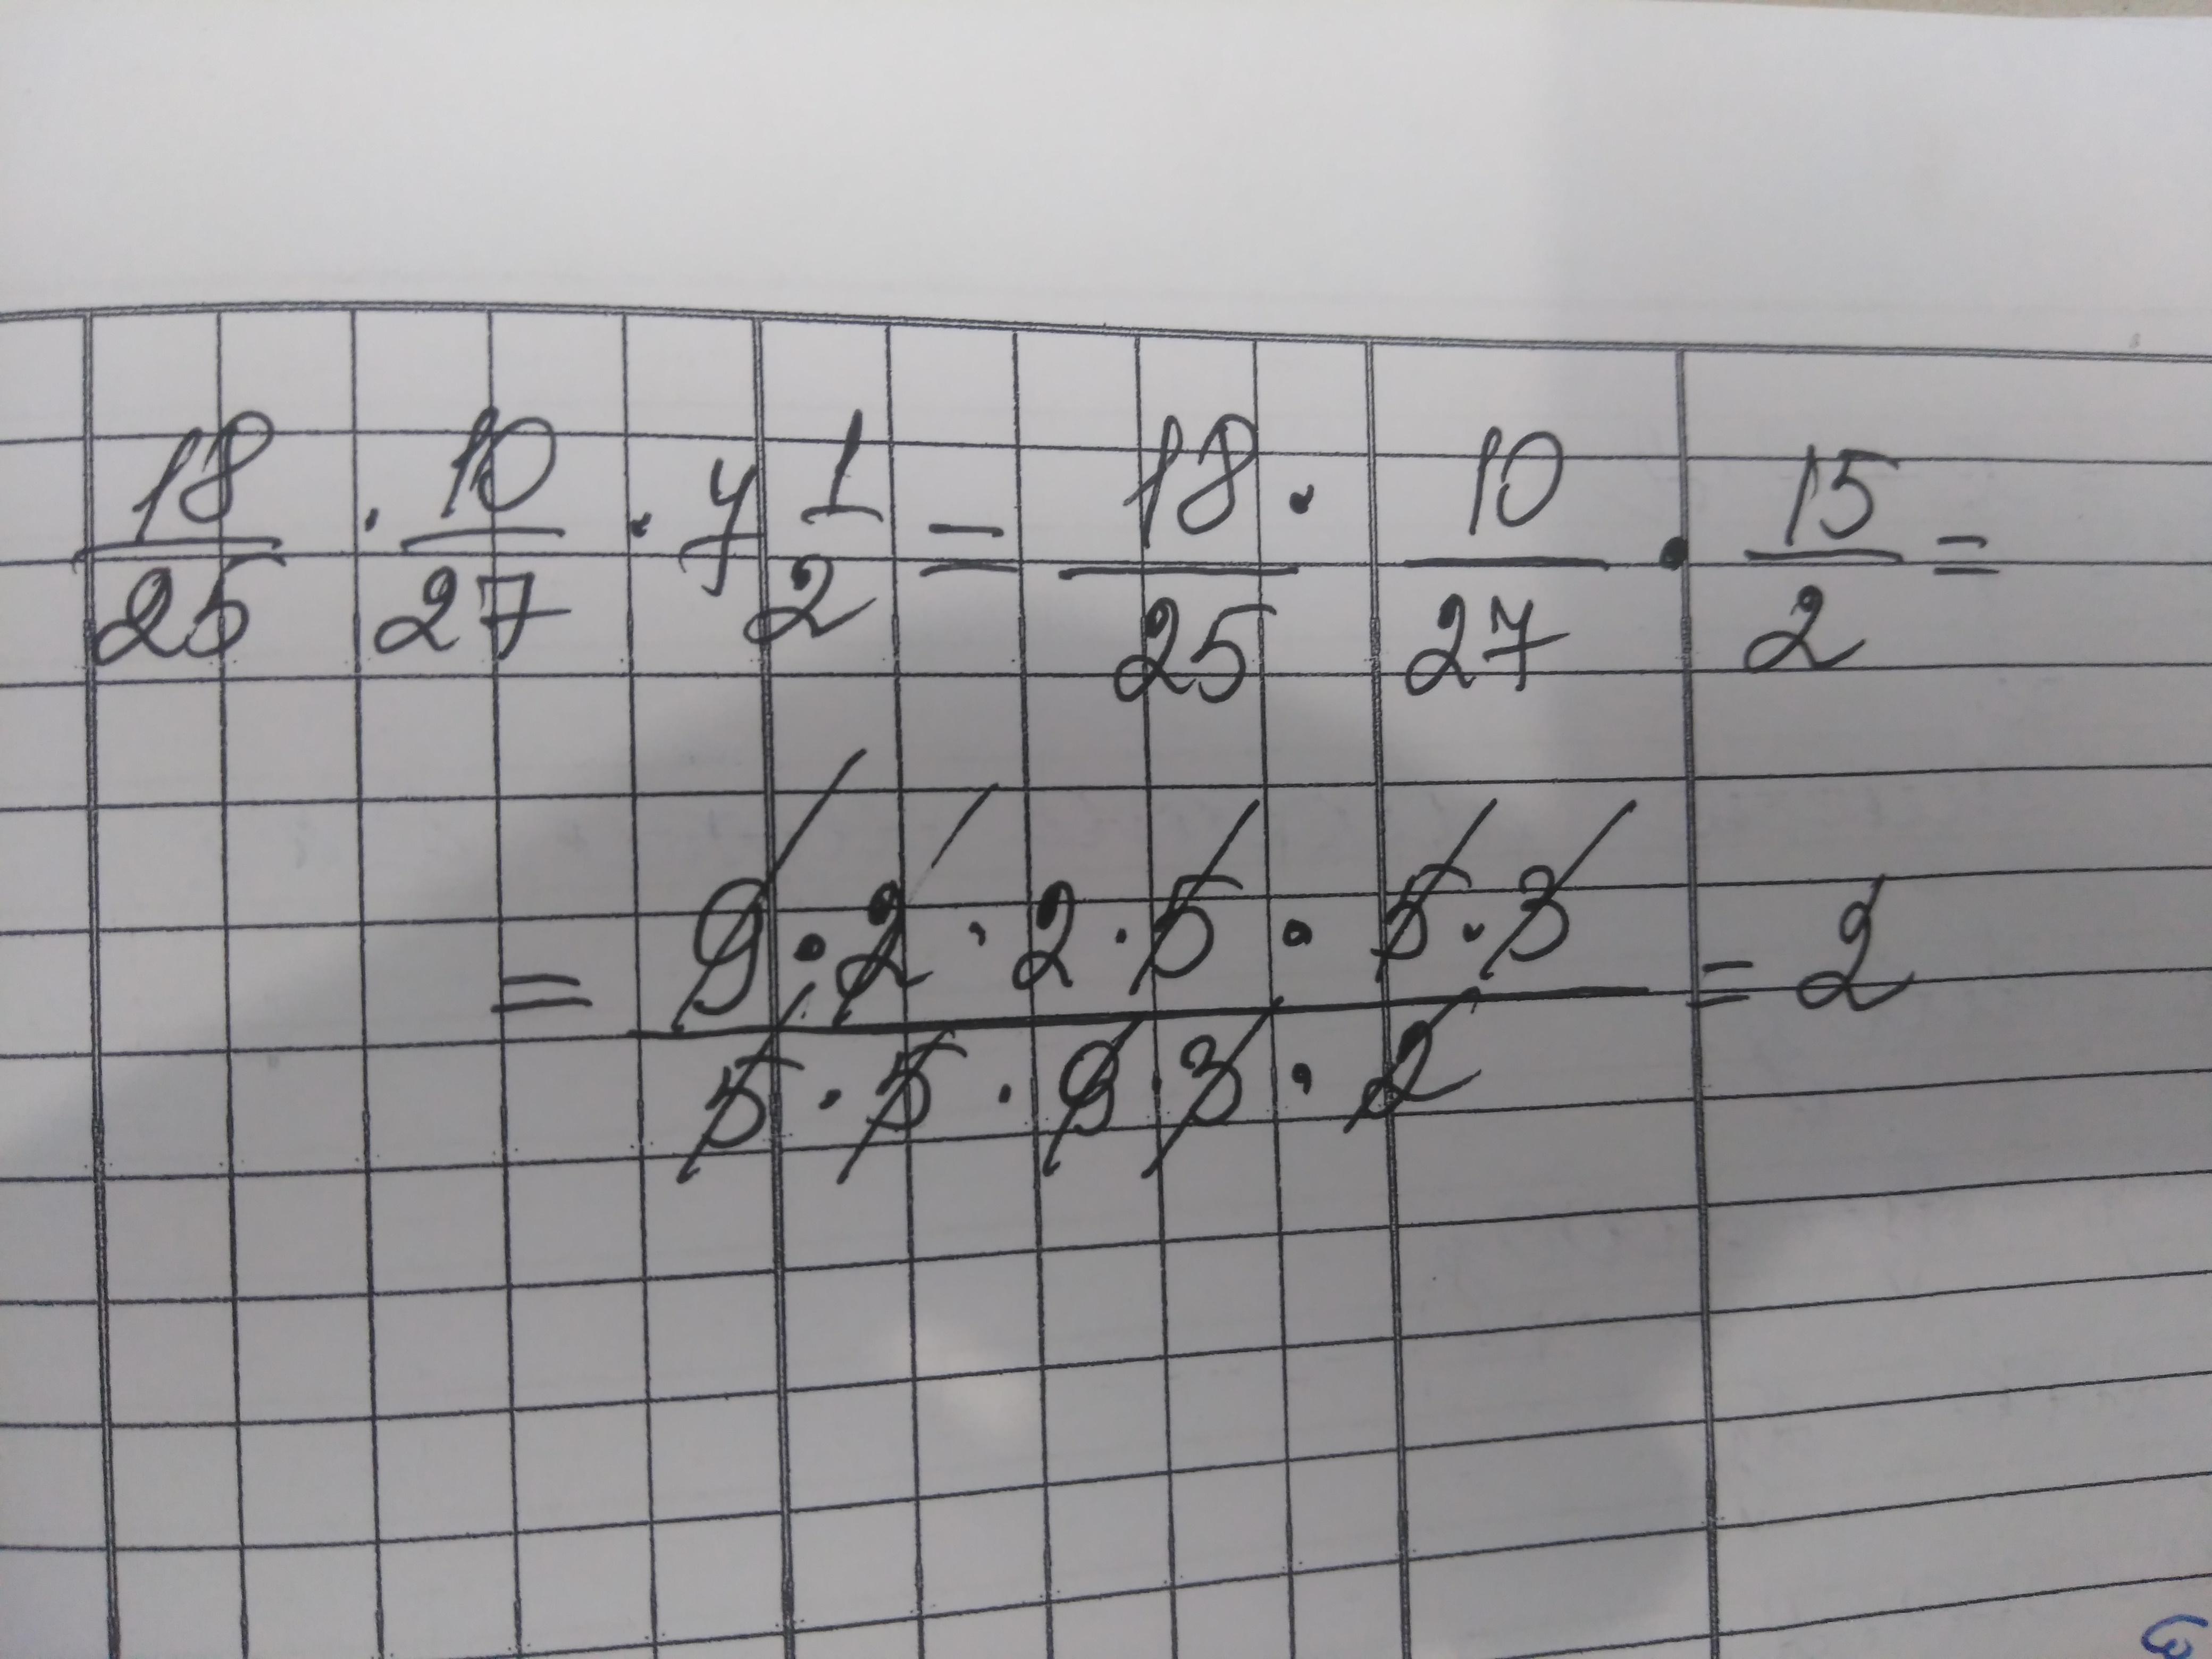 18/25 · 10/27 · 7 1/2 = 18/25 · 10/27 · 15/2 =
= (9 · 2 · 2 · 5 · 5 · 3)/(5 · 5 · 9 · 3 · 2) = 2